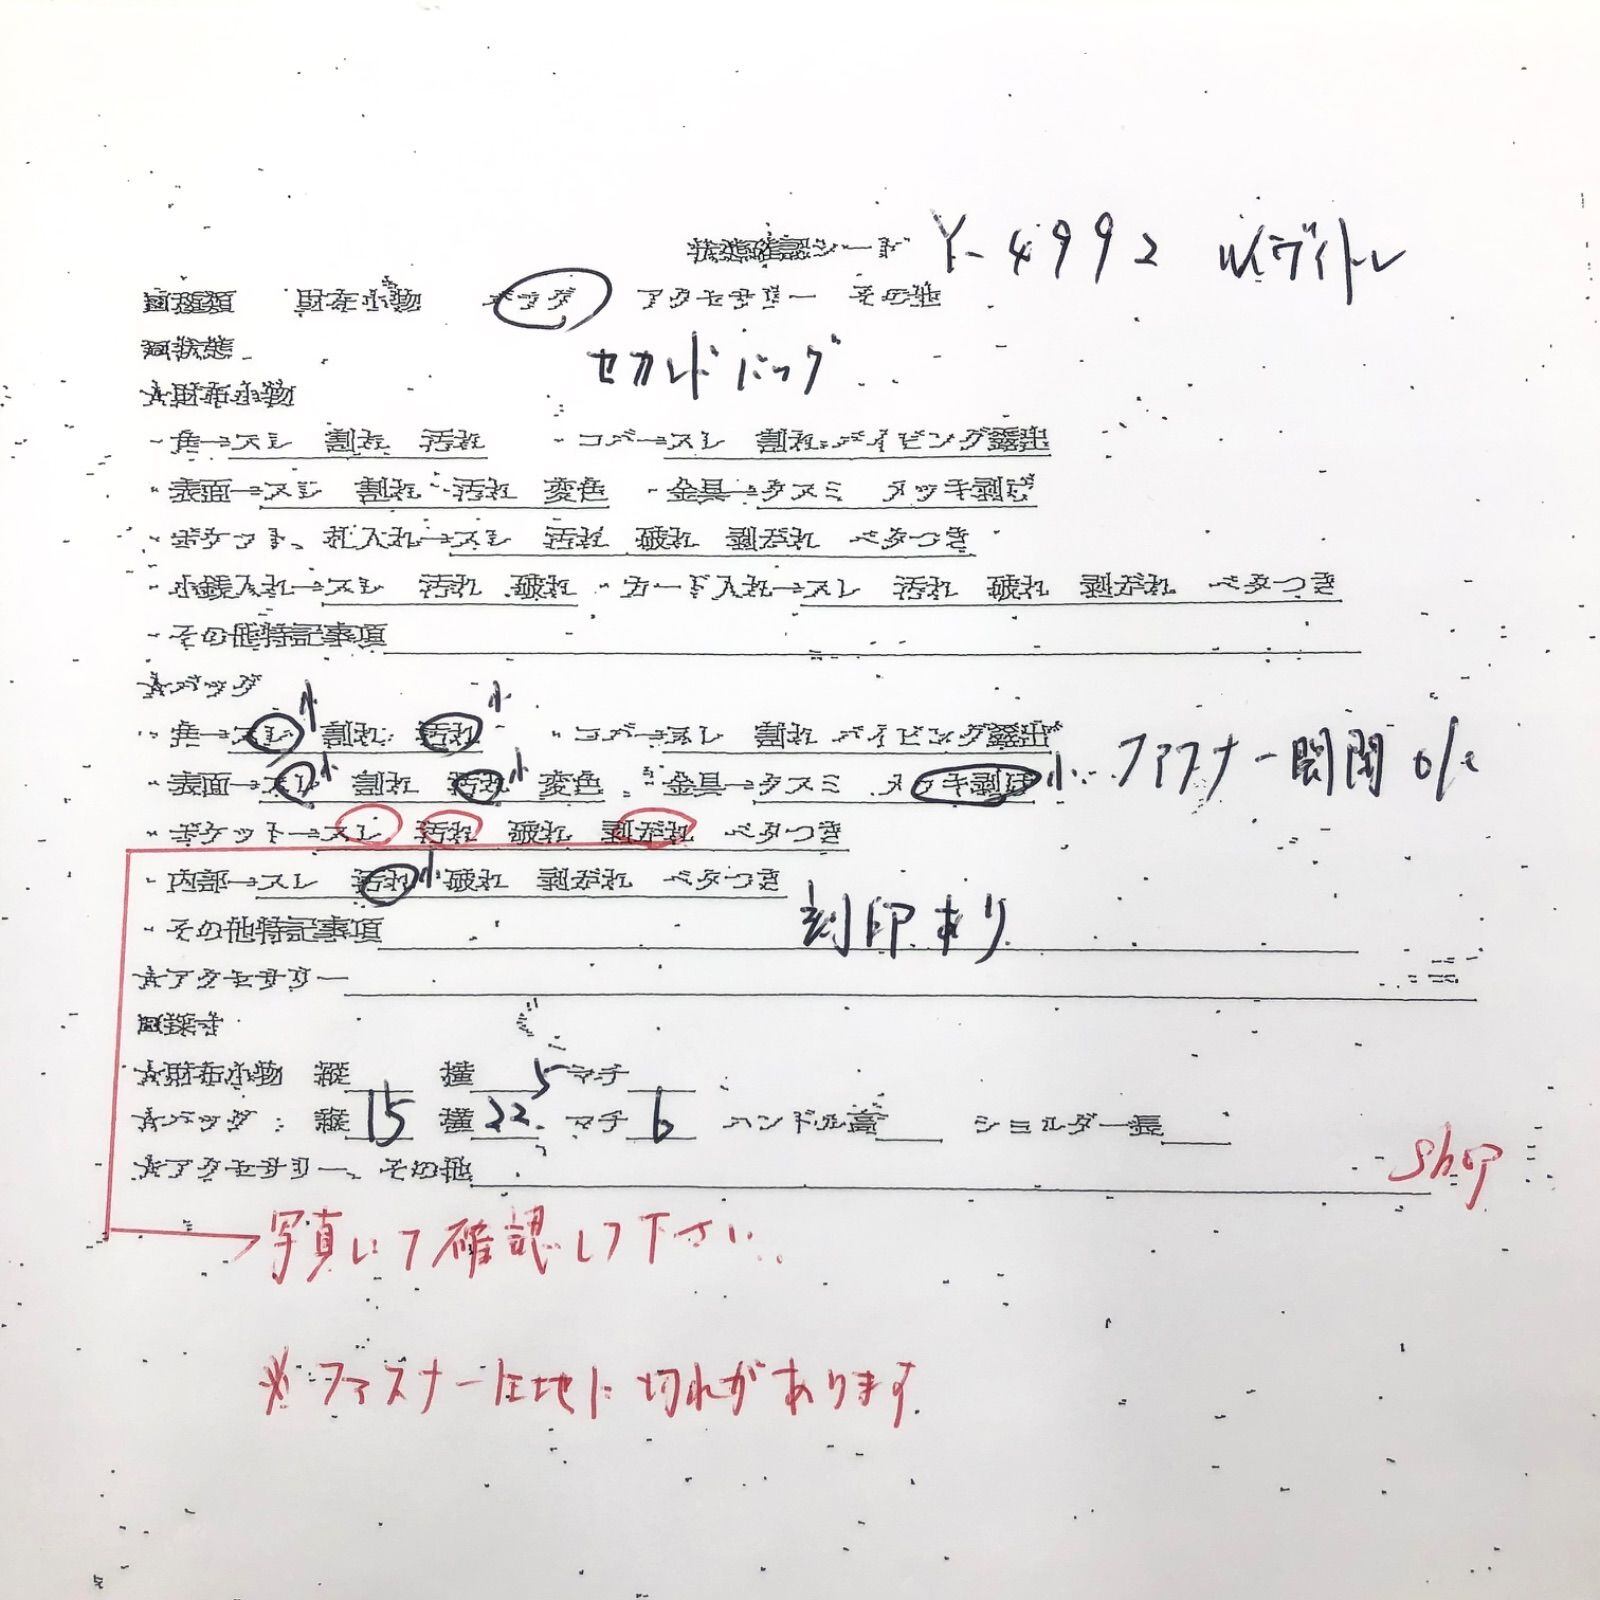 状態確認シート Y-4992 ルイヴィトン
□種類 財布小物 バッグ アクセサリー その他
セカンドバッグ
□状態
★財布小物
・角→スレ 割れ 汚れ ・コバ→スレ 割れ パイピング露出
・表面→スレ 割れ 汚れ 変色 ・金具→クスミ メッキ剥げ
・ポケット、札入れ→スレ 汚れ 破れ 剥がれ ベタつき
・小銭入れ→スレ 汚れ 破れ ・カード入れ→スレ 汚れ 破れ 剥がれ ベタつき
・その他特記事項
★バッグ
・角→スレ小 割れ 汚れ小 ・コバ→スレ 割れ パイピング露出
・表面→スレ小 割れ 汚れ小 変色 ・金具→クスミ メッキ剥げ小 ファスナー開閉 o/k
・ポケット→スレ 汚れ 破れ 剥がれ ベタつき
・内部→スレ 汚れ小 破れ 剥がれ ベタつき
・その他特記事項 刻印あり
★アクセサリー
□採寸
★財布小物 縦 横 マチ
★バッグ:縦15 横22.5 マチ6 ハンドル高 ショルダー長
★アクセサリー、その他
shop
写真にて確認して下さい
※ファスナー生地に切れがあります